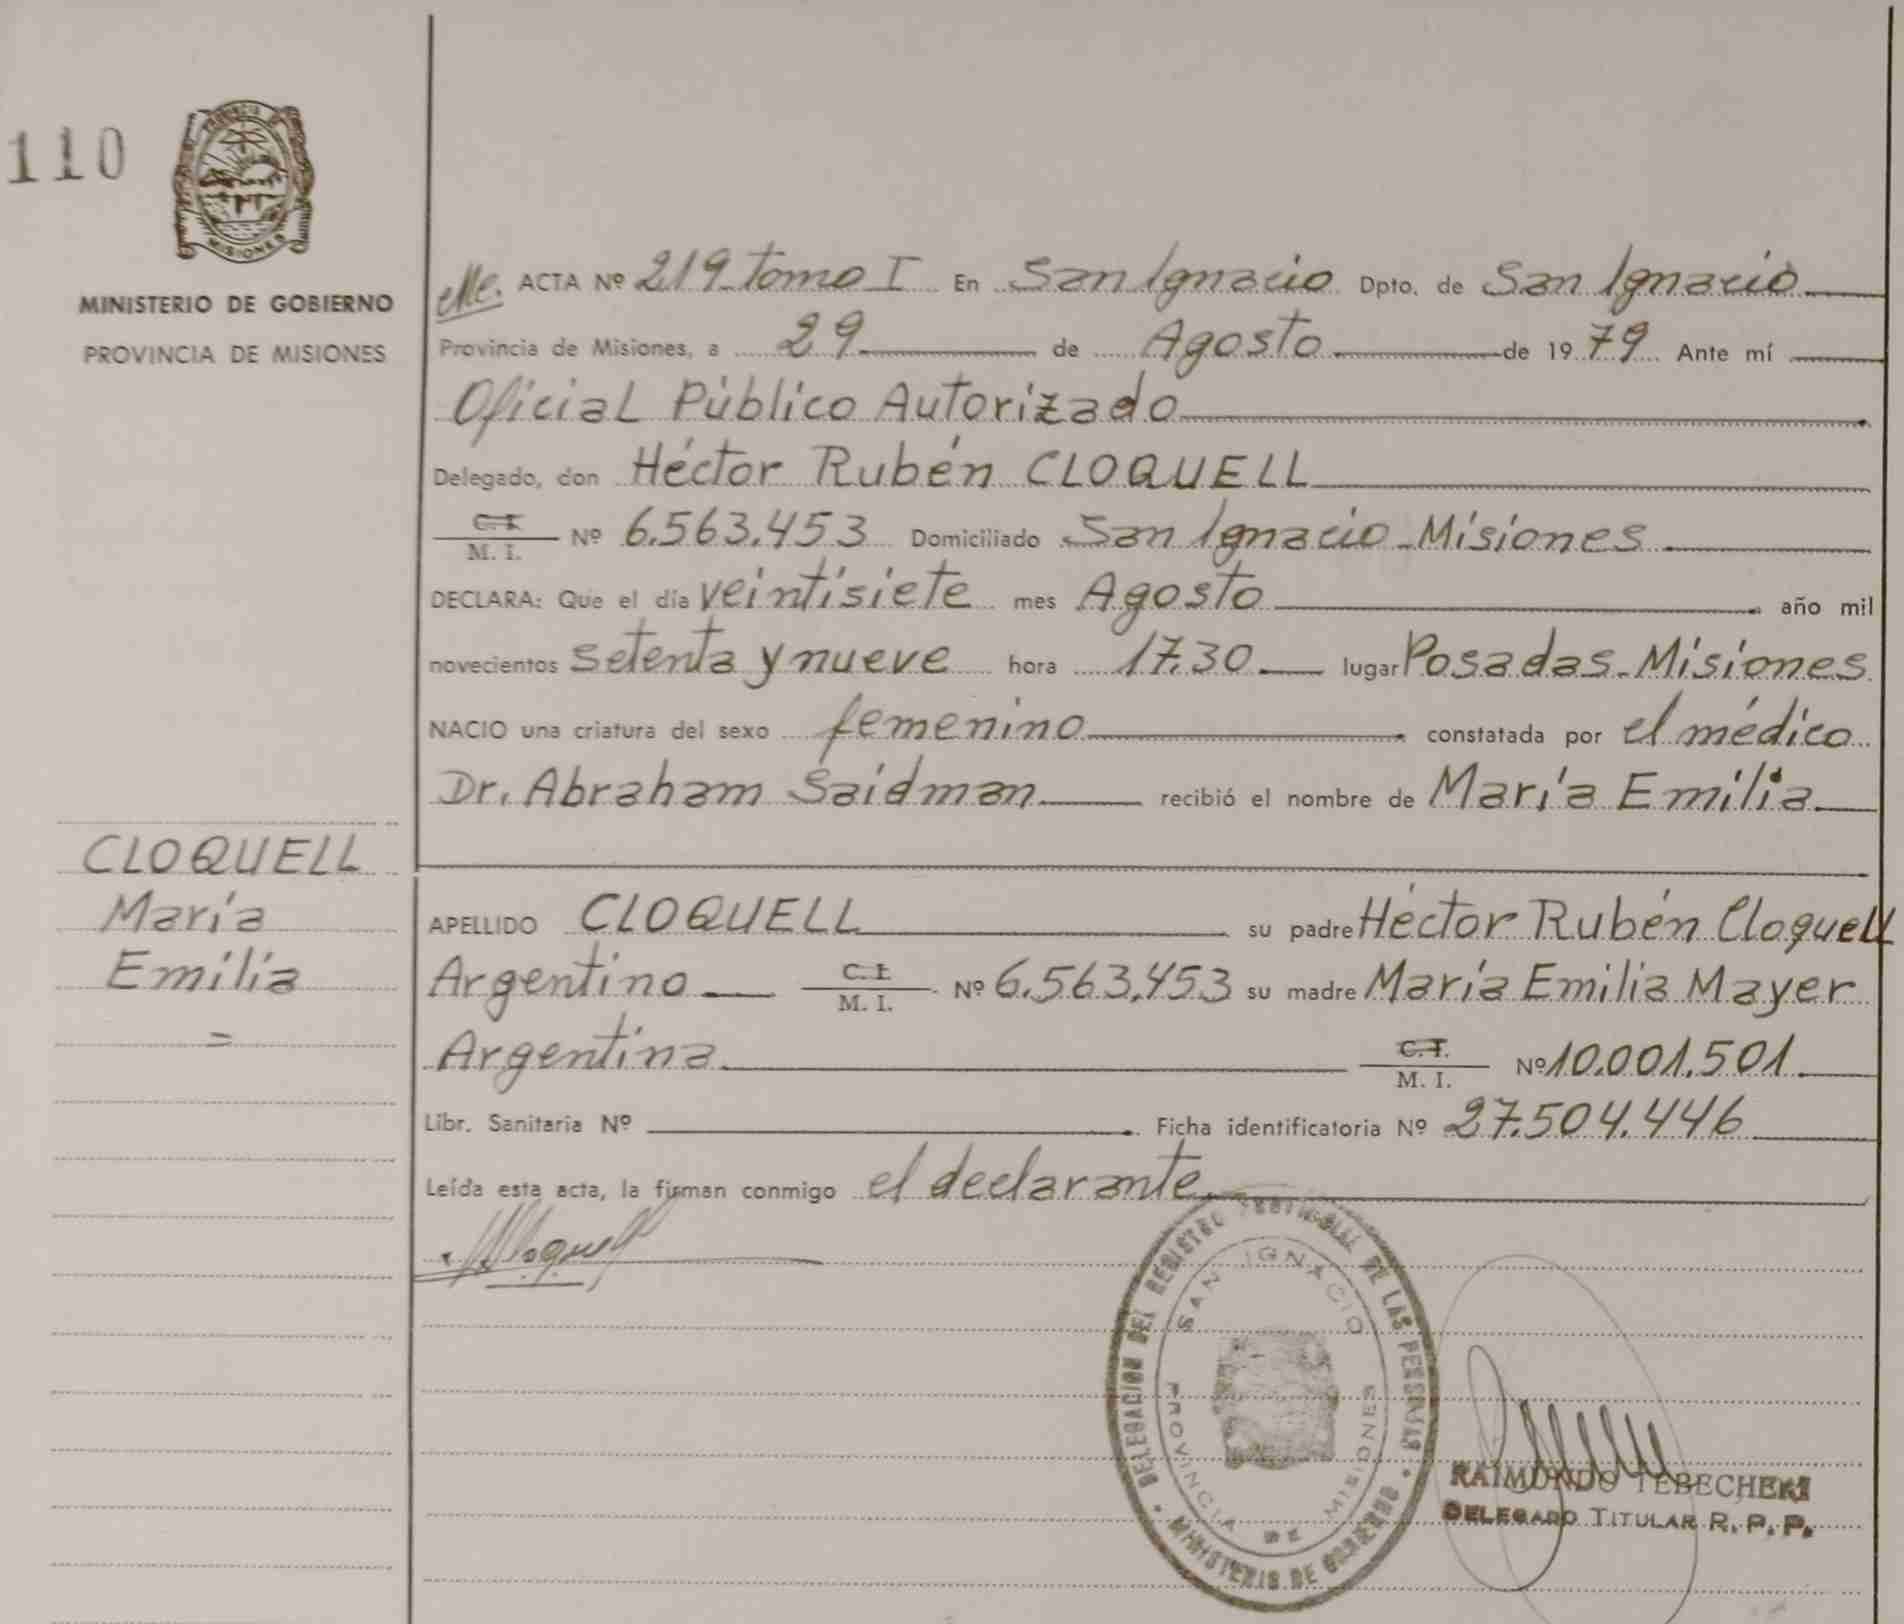 110
PROVINCIA DE
MISIONES
MINISTERIO DE GOBIERNO
PROVINCIA DE MISIONES
ACTA Nº 219 tomo I En San Ignacio Dpto. de San Ignacio
Provincia de Misiones, a 29 de Agosto de 1979 Ante mí
Oficial Público Autorizado
Delegado, don Héctor Rubén CLOQUELL
C. I.
M. I. Nº 6.563.453 Domiciliado San Ignacio - Misiones
DECLARA: Que el día veintisiete mes Agosto año mil
novecientos setenta y nueve hora 17.30 lugar Posadas - Misiones
NACIO una criatura del sexo femenino constatada por el médico
Dr. Abraham Saidman recibió el nombre de María Emilia
CLOQUELL
María
Emilia
=
APELLIDO CLOQUELL su padre Héctor Rubén Cloquell
Argentino C. I. M. I. Nº 6.563.453 su madre María Emilia Mayer
Argentina C. I. M. I. Nº 10.001.501
Libr. Sanitaria Nº Ficha identificatoria Nº 27.504.446
Leída esta acta, la firman conmigo el declarante.
DELEGACION DEL REGISTRO PROVINCIAL DE LAS PERSONAS
MINISTERIO DE GOBIERNO
SAN IGNACIO
PROVINCIA DE MISIONES
RAIMUNDO
DELEGADO TITULAR R. P. P.